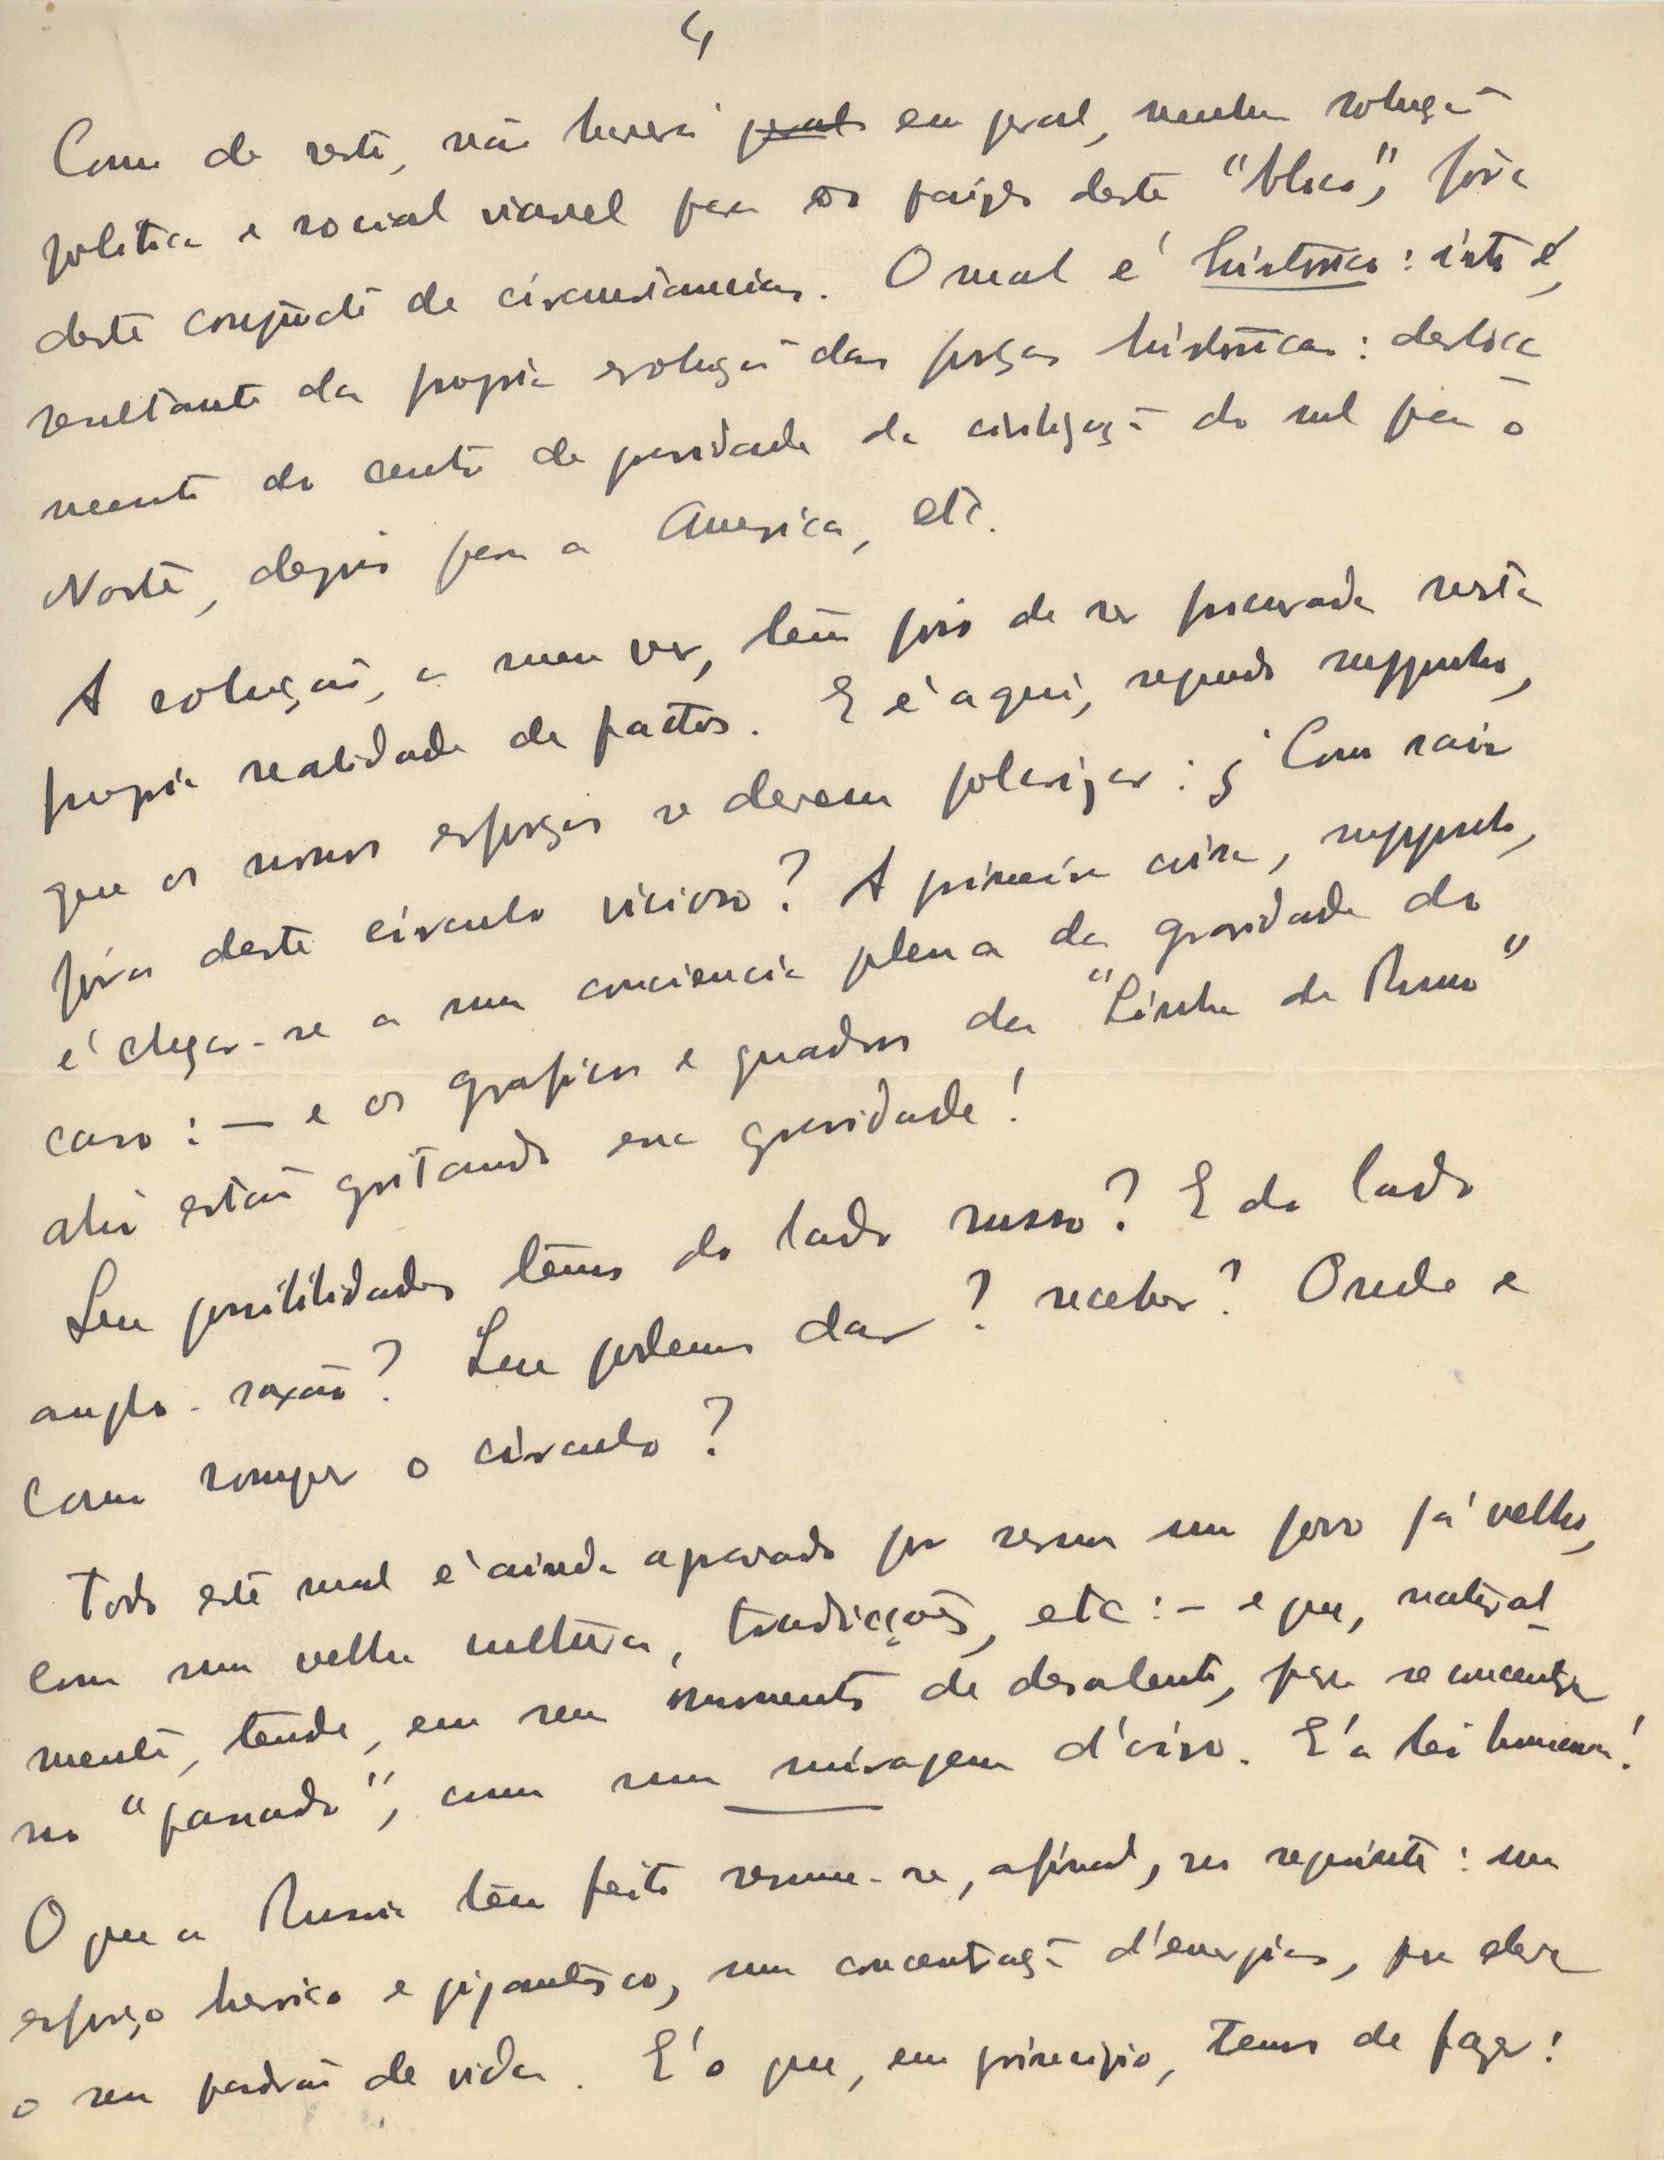 4
Como de resto, não haverá geral em geral, nenhuma solução
politica e social viavel para os paizes deste "bloco", fóra
deste conjuncto de circunstancias. O mal é historico: isto é,
resultante da propria evolução das forças historicas: desloca
mento do centro de gravidade da civilização do sul para o
Norte, depois para a America, etc.
A solução, a meu ver, tem pois de ser procurada nesta
propria realidade de factos. E é aqui, segundo supponho,
que os nossos esforços se devem polarizar: ¿ Como sair
fóra deste circulo vicioso? A primeira coisa, supponho,
é chegar-se a uma conciencia plena da gravidade do
caso: — e os graficos e quadros da "Linha de Rumo"
ahi estão gritando essa gravidade!
Que possibilidades temos do lado russo? E do lado
anglo-saxão? Que podemos dar? receber? Onde e
Como romper o circulo?
Todo este mal é ainda agravado por sermos um povo já velho,
com uma velha cultura, tradicções, etc: — e que, natural_
mente, tende, em seu momento de desalento, para se concentrar
no "passado", como uma miragem d'oiro. E' a lei humana!
O que a Russia tem feito resume-se, afinal, no seguinte: um
esforço heroico e gigantesco, uma concentração d'energias, para elevar
o seu padrão de vida. E' o que, em principio, temos de fazer!